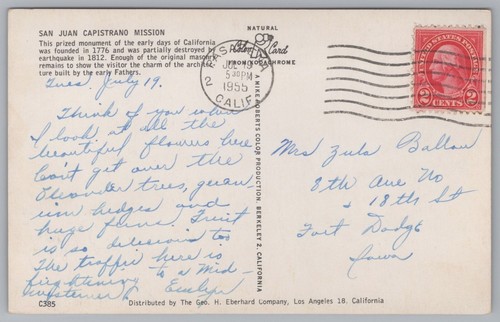 SAN JUAN CAPISTRANO MISSION
This prized monument of the early days of California
was founded in 1776 and was partially destroyed by
earthquake in 1812. Enough of the original mason
remains to show the visitor the charm of the archi
ture built by the early Fathers.
NATURAL
Color Card
FROM KODACHROME
JUL 19
5 30 PM
1955
2
CALIF.
UNITED STATES POSTAGE
2 CENTS 2
Tues. July 19.
Think of you when
I look at all the
beautiful flowers here
Cant get over the
Oleander trees, geran-
ium hedges and
huge ferns. Fruit
is so delicious too
The traffic here is
frightening to a Mid-
westerner
Evelyn
A MIKE ROBERTS COLOR PRODUCTION, BERKELEY 2, CALIFORNIA
Mrs Zula Ballou
8th Ave No
& 18th St
Fort Dodge
Iowa
C385
Distributed by The Geo. H. Eberhard Company, Los Angeles 18, California